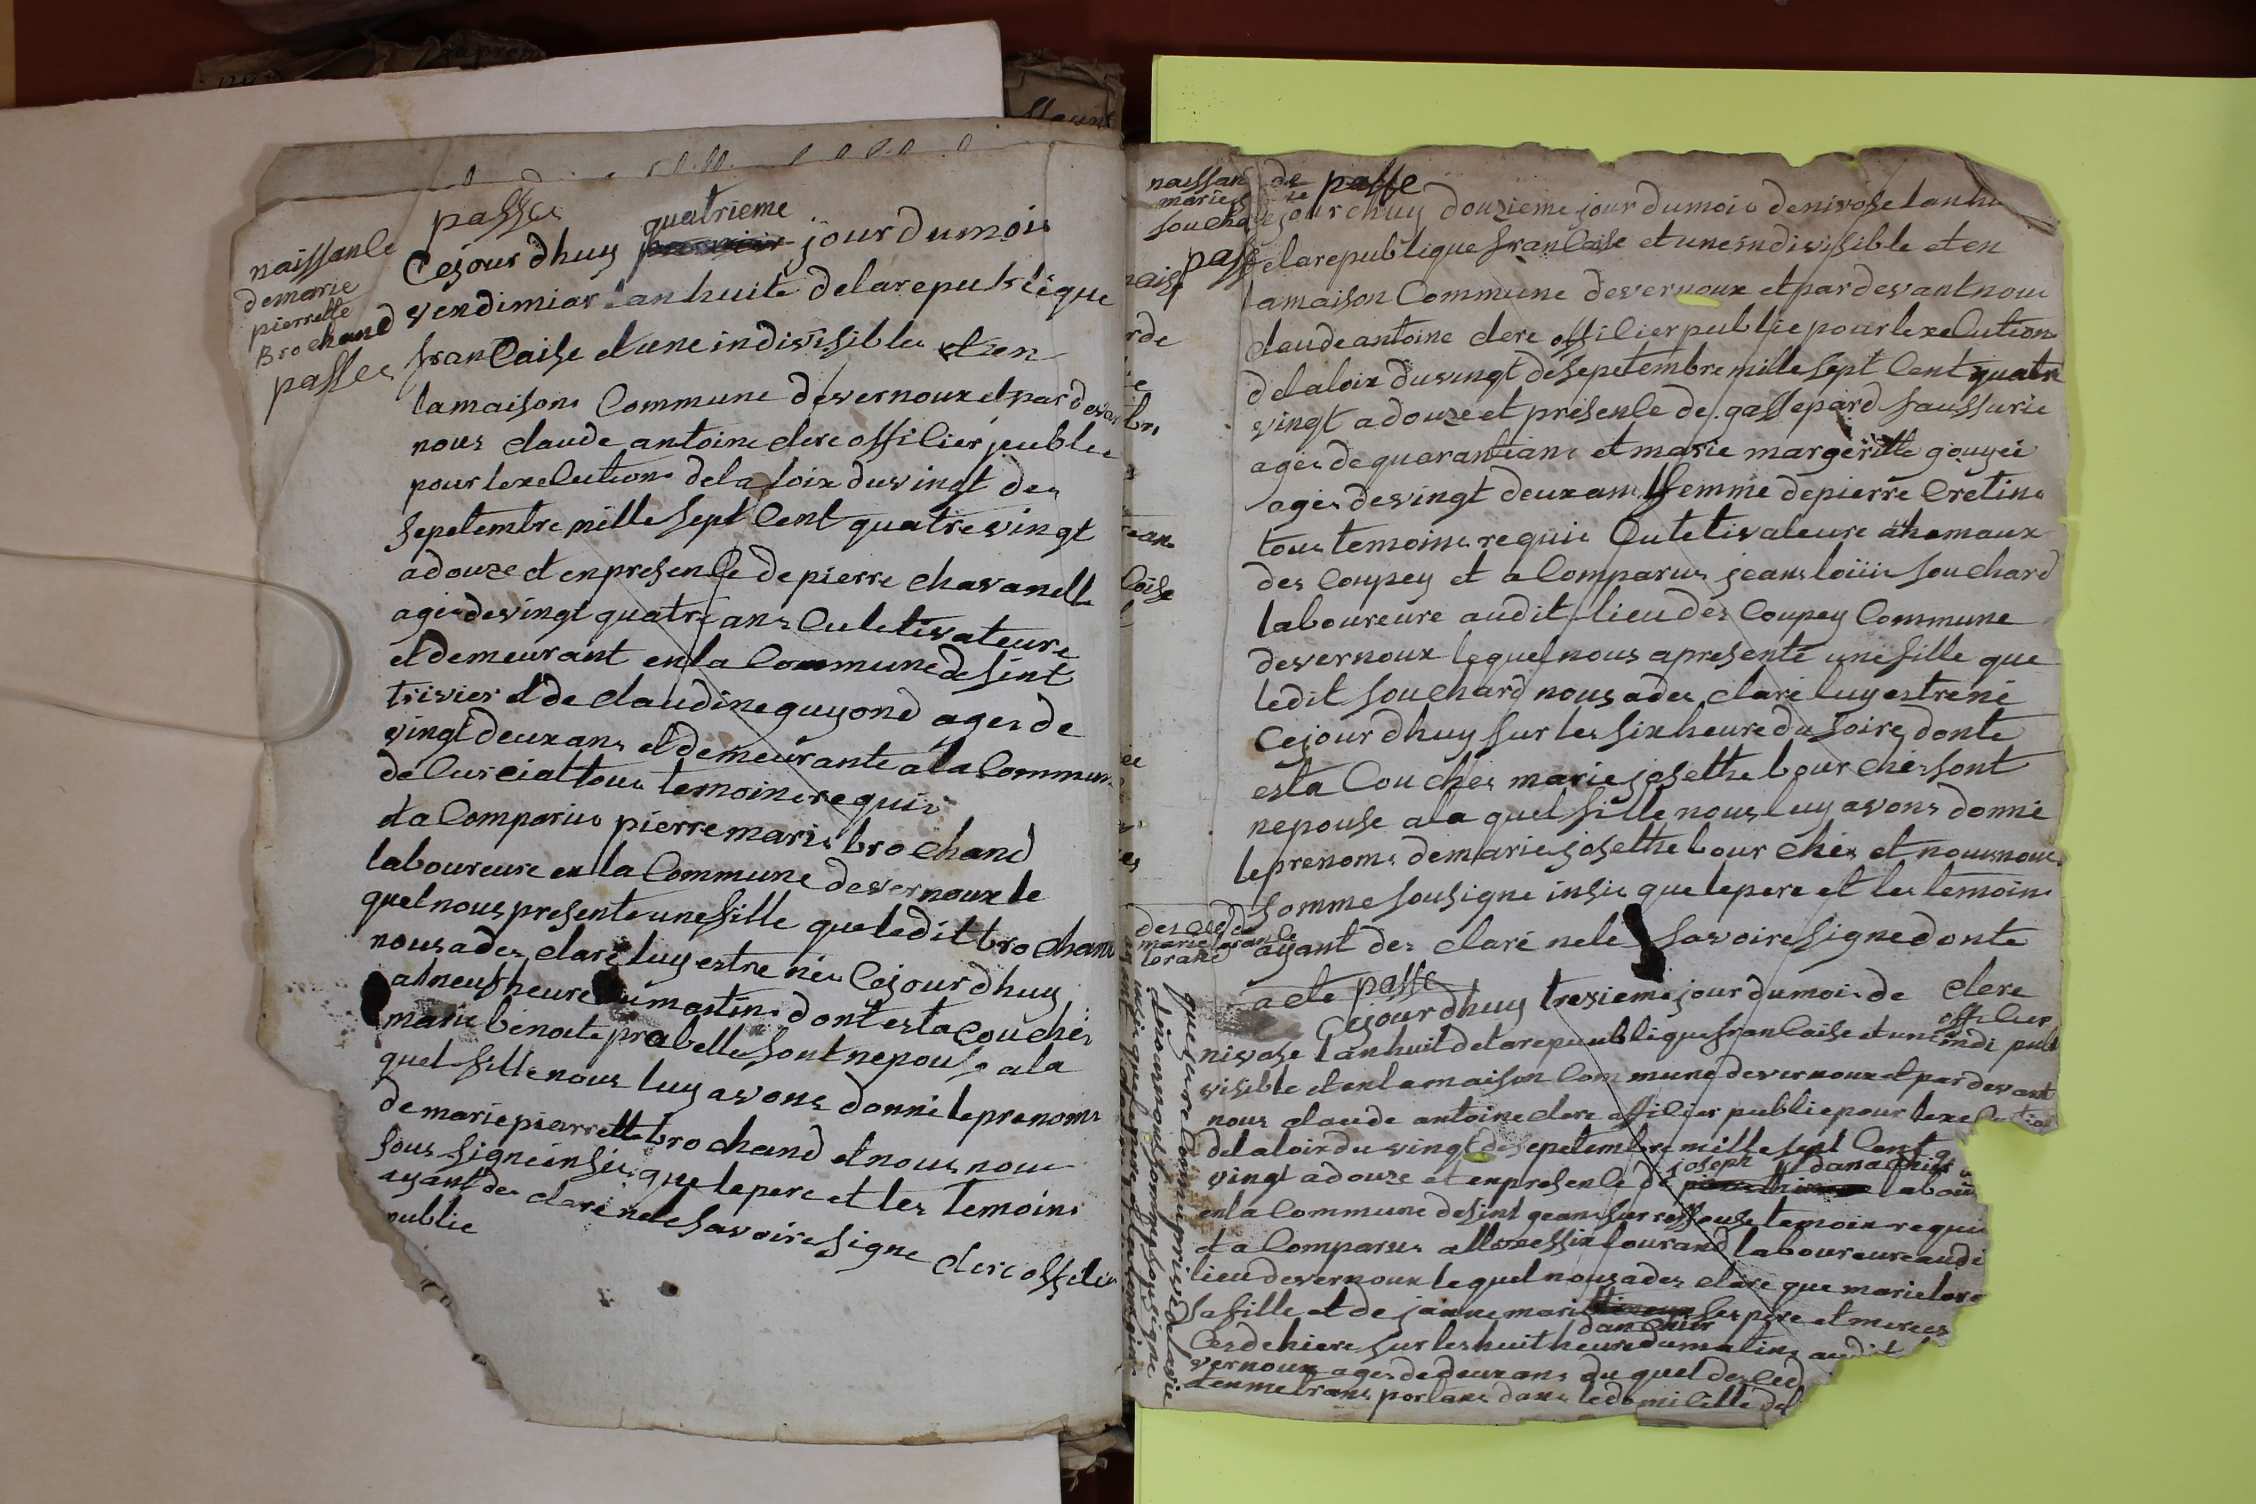 passee
naissance
demarie
pierrette
Brochand
passee
quatrieme
Cejourdhuy jour dumois
vendimiar lanhuite delarepublique
francaise et une indivisible et en
lamaison Commune devernoux et par devant
nous claude antoine clerc officier publie
pour lexecution de la loix duvingt de
sepetembre mille sept Cent quatre vingt
adouze et enpresence de pierre chavanelle
ages devingt quatre ans Culetivateure
et demeurant en la Commune de sint
trivier et de claudine guyond ages de
vingt deux ans et demeurante a la Commune
de Curciat tous temoins requis
et a Comparus pierre marie brochand
laboureure en la Commune devernoux le
quel nous presente une fille que ledit brochand
nous ades claré luy estre née Cejourdhuy
a neuf heure du matin dont esta Couchés
marie benoite prabelle sont nepouse a la
quel fille nous luy avons donné leprenoms
de marie pierrette brochand et nous nous
sous signé insie que lepere et les temoins
ayant des claré nele savoire signe clerc officier
publie
naissan de passe
marie
souchard
passe
jourdhuy douzieme jour dumois denivose lanhu
delarepublique francaise et une indivisible et en
lamaison Commune devernoux et pardevant nous
claude antoine clerc officier publie pour lexecution
de la loix duvingt de sepetembre mille sept Cent quatre
vingt adouze et presence de gassepard faussurie
ages de quarantians et marie margeritte gouyei
ages devingt deux ans femme depierre Cretin
tous temoins requis Culetivateure ahamaux
des Coupey et a Comparus jeans loiiis souchard
laboureure audit lieu des Coupey Commune
devernoux lequel nous apresenté une fille que
ledit souchard nous ades claré luy estre né
Cejourdhuy sur les six heure du soire donte
esta Couches marie josethe bourchés sont
nepouse a la quel fille nous luy avons donné
leprenoms de marie josethe bourchés et nous nous
somme sousigne insie que lepere et les temoins
ayant des claré nele savoire signe donte
acte passe clerc
officier
publ
des ces de
marie
lorand
Cejourdhuy tresieme jour dumois de
nivose lanhuit delarepueblique francaise et une indi
visible et en la maison Commune devernoux et par devant
nous claude antoine clerc officier publie pour lexecution
de la loix du vingt de sepetembre mille sept Cent q
joseph danachier
vingt adouze et enpresence de labou
en la Commune de sint jean sur ressouse temoin requi
et a Comparus lourand laboureure audi
lieu devernoux lequel nous ades claré que marie lora
sa fille et de janne marie danchier ses pere et merees
Ces de hiere sur les huit heure du matin audit
vernoux ages de deux ans du quel des ced
et en me transportans dans le domicille del